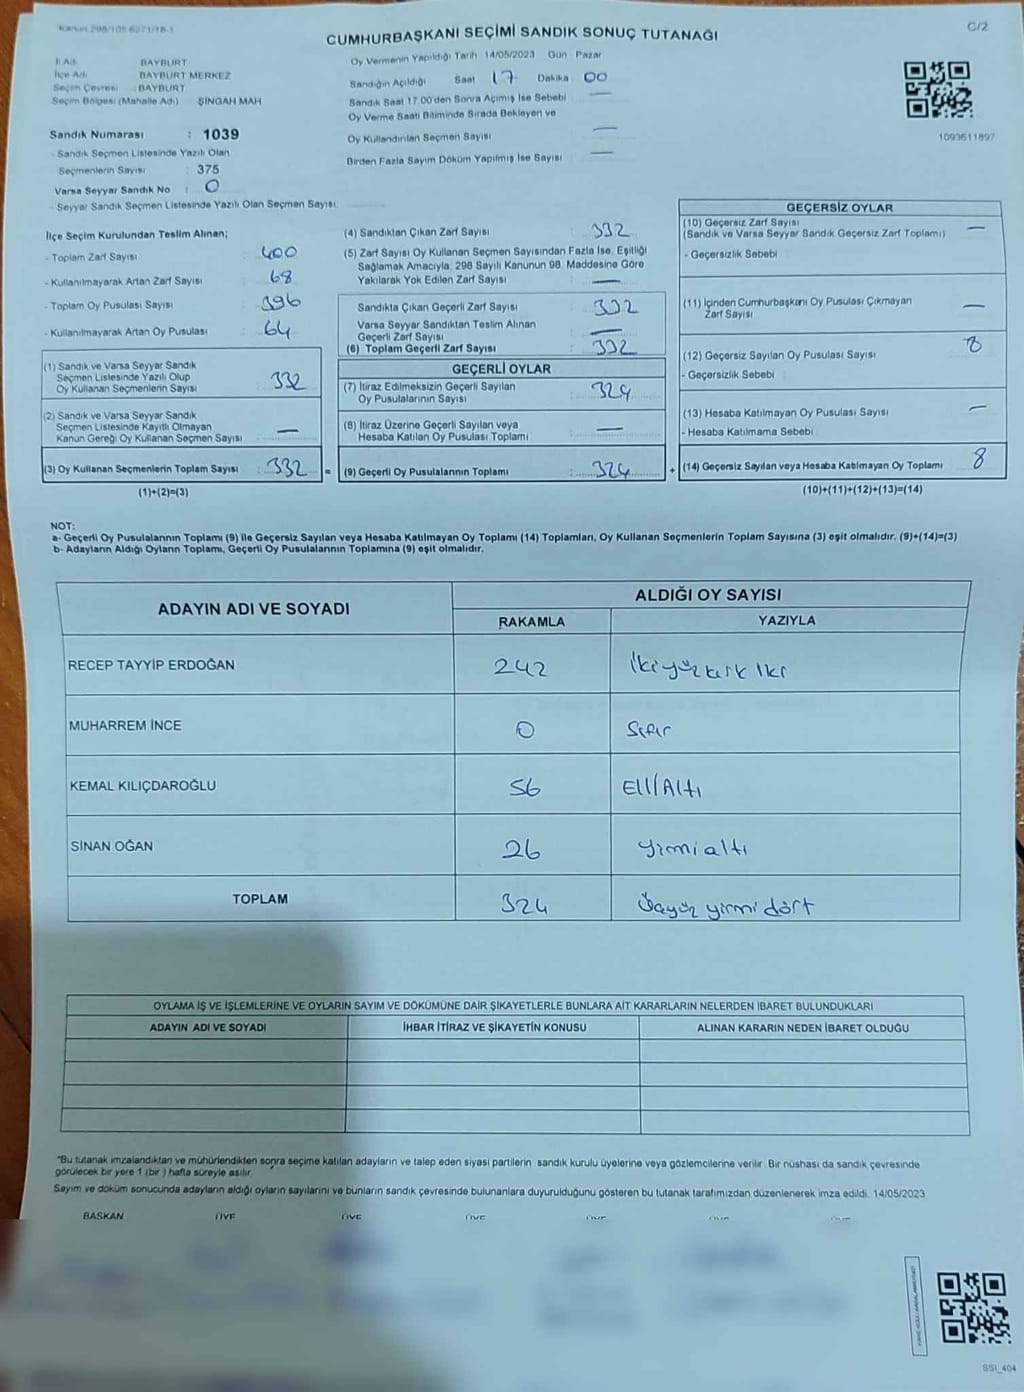 Kanun 298/105 6271/18-1
C/2
CUMHURBAŞKANI SEÇİMİ SANDIK SONUÇ TUTANAĞI
İl Adı : BAYBURT
İlçe Adı : BAYBURT MERKEZ
Seçim Çevresi : BAYBURT
Seçim Bölgesi (Mahalle Adı) : ŞİNGAH MAH
Sandık Numarası : 1039
- Sandık Seçmen Listesinde Yazılı Olan
Seçmenlerin Sayısı : 375
Varsa Seyyar Sandık No : 0
- Seyyar Sandık Seçmen Listesinde Yazılı Olan Seçmen Sayısı:
Oy Vermenin Yapıldığı Tarih 14/05/2023 Gün : Pazar
Sandığın Açıldığı Saat : 17 Dakika : 00
Sandık Saat 17.00'den Sonra Açılmış İse Sebebi : —
Oy Verme Saati Bitiminde Sırada Bekleyen ve
Oy Kullandırılan Seçmen Sayısı : —
Birden Fazla Sayım Döküm Yapılmış İse Sayısı : —
1093611897
İlçe Seçim Kurulundan Teslim Alınan;
- Toplam Zarf Sayısı : 400
- Kullanılmayarak Artan Zarf Sayısı : 68
- Toplam Oy Pusulası Sayısı : 396
- Kullanılmayarak Artan Oy Pusulası : 64
(1) Sandık ve Varsa Seyyar Sandık
Seçmen Listesinde Yazılı Olup
Oy Kullanan Seçmenlerin Sayısı : 332
(2) Sandık ve Varsa Seyyar Sandık
Seçmen Listesinde Kayıtlı Olmayan
Kanun Gereği Oy Kullanan Seçmen Sayısı : —
(3) Oy Kullanan Seçmenlerin Toplam Sayısı : 332 =
(1)+(2)=(3)
(4) Sandıktan Çıkan Zarf Sayısı : 332
(5) Zarf Sayısı Oy Kullanan Seçmen Sayısından Fazla İse, Eşitliği
Sağlamak Amacıyla, 298 Sayılı Kanunun 98. Maddesine Göre
Yakılarak Yok Edilen Zarf Sayısı : —
Sandıkta Çıkan Geçerli Zarf Sayısı : 332
Varsa Seyyar Sandıktan Teslim Alınan
Geçerli Zarf Sayısı : —
(6) Toplam Geçerli Zarf Sayısı : 332
GEÇERLİ OYLAR
(7) İtiraz Edilmeksizin Geçerli Sayılan
Oy Pusulalarının Sayısı : 324
(8) İtiraz Üzerine Geçerli Sayılan veya
Hesaba Katılan Oy Pusulası Toplamı : —
(9) Geçerli Oy Pusulalarının Toplamı : 324 +
GEÇERSİZ OYLAR
(10) Geçersiz Zarf Sayısı : —
(Sandık ve Varsa Seyyar Sandık Geçersiz Zarf Toplamı)
- Geçersizlik Sebebi :
(11) İçinden Cumhurbaşkanı Oy Pusulası Çıkmayan
Zarf Sayısı : —
(12) Geçersiz Sayılan Oy Pusulası Sayısı : 8
- Geçersizlik Sebebi :
(13) Hesaba Katılmayan Oy Pusulası Sayısı : —
- Hesaba Katılmama Sebebi :
(14) Geçersiz Sayılan veya Hesaba Katılmayan Oy Toplamı : 8
(10)+(11)+(12)+(13)=(14)
NOT:
a- Geçerli Oy Pusulalarının Toplamı (9) ile Geçersiz Sayılan veya Hesaba Katılmayan Oy Toplamı (14) Toplamları, Oy Kullanan Seçmenlerin Toplam Sayısına (3) eşit olmalıdır. (9)+(14)=(3)
b- Adayların Aldığı Oyların Toplamı, Geçerli Oy Pusulalarının Toplamına (9) eşit olmalıdır.
ADAYIN ADI VE SOYADI ALDIĞI OY SAYISI
RAKAMLA YAZIYLA
RECEP TAYYİP ERDOĞAN 242 İkiyüzkırk iki
MUHARREM İNCE 0 Sıfır
KEMAL KILIÇDAROĞLU 56 Elli Altı
SİNAN OĞAN 26 yirmi altı
TOPLAM 324 Üçyüz yirmi dört
OYLAMA İŞ VE İŞLEMLERİNE VE OYLARIN SAYIM VE DÖKÜMÜNE DAİR ŞİKAYETLERLE BUNLARA AİT KARARLARIN NELERDEN İBARET BULUNDUKLARI
ADAYIN ADI VE SOYADI İHBAR İTİRAZ VE ŞİKAYETİN KONUSU ALINAN KARARIN NEDEN İBARET OLDUĞU
*Bu tutanak imzalandıktan ve mühürlendikten sonra seçime katılan adayların ve talep eden siyasi partilerin sandık kurulu üyelerine veya gözlemcilerine verilir. Bir nüshası da sandık çevresinde
görülecek bir yere 1 (bir ) hafta süreyle asılır.
Sayım ve döküm sonucunda adayların aldığı oyların sayılarını ve bunların sandık çevresinde bulunanlara duyurulduğunu gösteren bu tutanak tarafımızdan düzenlenerek imza edildi. 14/05/2023
BAŞKAN ÜYE ÜYE ÜYE ÜYE ÜYE ÜYE
SSI_404